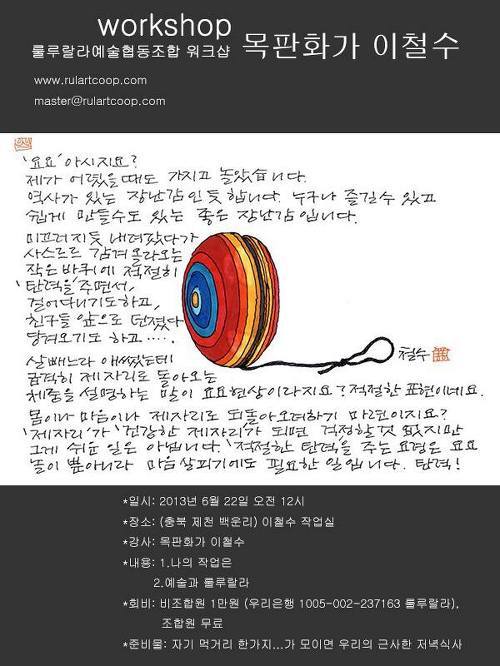 workshop
룰루랄라예술협동조합 워크샵 목판화가 이철수
www.rulartcoop.com
master@rulartcoop.com
'요요' 아시지요?
제가 어렸을 때도 가지고 놀았습니다.
역사가 있는 장난감인 듯 합니다. 누구나 즐길수 있고
쉽게 만들수도 있는 좋은 장난감입니다.
미끄러지듯 내려갔다가
사스르르 감겨 올라오는
작은 바퀴에 적절히
'탄력을' 주면서,
걸어다니기도하고,
친구들 앞으로 던졌다
당겨오기도 하고‥‥.
살빼느라 애썼는데
급격히 제자리로 돌아오는
체중을 설명하는 말이 요요현상이라지요? 적절한 표현이네요.
몸이나 마음이나 제자리로 되돌아오려하기 마련이지요?
'제자리'가 '건강한 제자리'가 되면 걱정할것 없지만
그게 쉬운 일은 아닙니다. '적절한 탄력'을 주는 요령은 요요
놀이 뿐아니라 마음살피기에도 필요한 일입니다. 탄력!
철수
*일시: 2013년 6월 22일 오전 12시
*장소: (충북 제천 백운리) 이철수 작업실
*강사: 목판화가 이철수
*내용: 1.나의 작업은
2.예술과 룰루랄라
*회비: 비조합원 1만원 (우리은행 1005-002-237163 룰루랄라),
조합원 무료
*준비물: 자기 먹거리 한가지...가 모이면 우리의 근사한 저녁식사